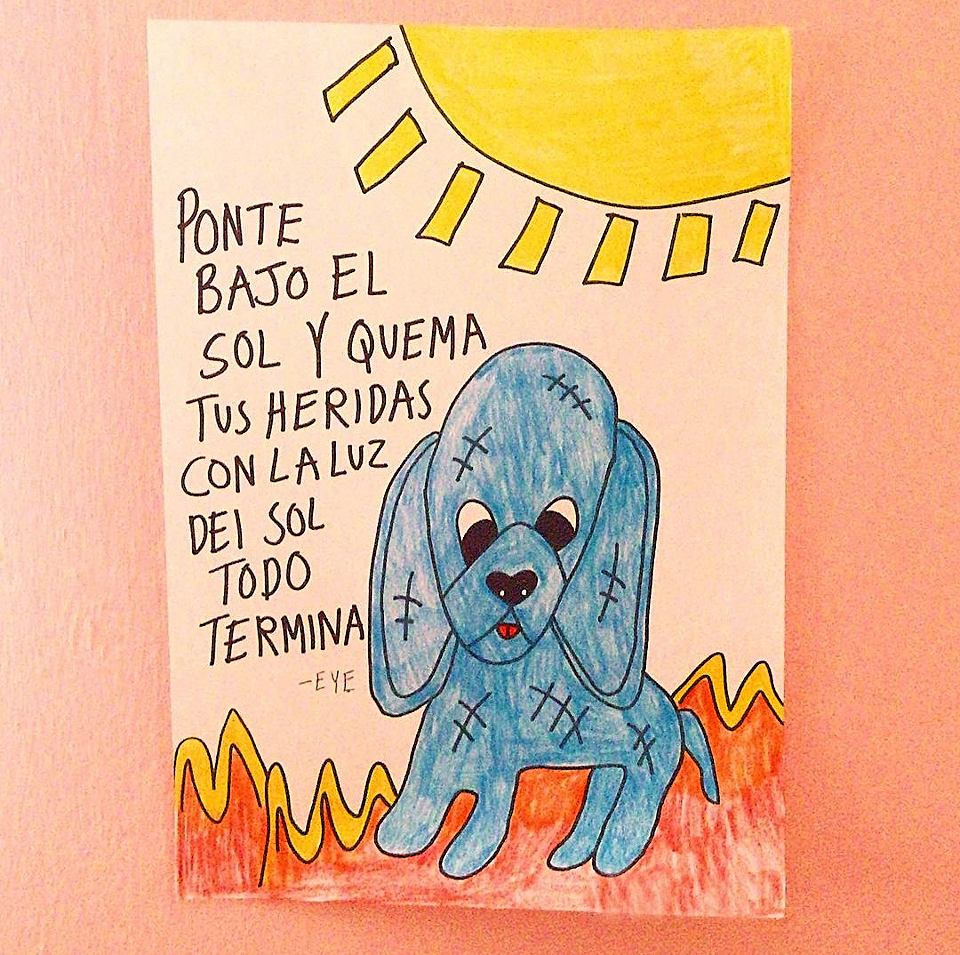 PONTE
BAJO EL
SOL Y QUEMA
TUS HERIDAS
CON LA LUZ
DEl SOL
TODO
TERMINA
-EYE